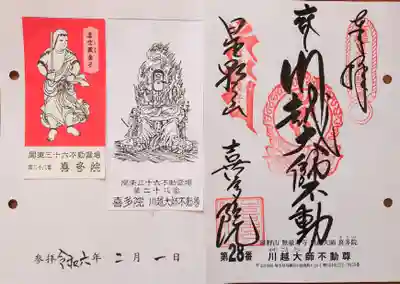 関東三十六不動霊場
第二十八番 喜多院
関東三十六不動霊場
第二十八番
喜多院 川越大師不動尊
参拝 令和六年 二月 一日
奉拝
川越大師不動
星野山 喜多院
第28番
星野山 無量寿寺 川越大師 喜多院
川越大師不動尊